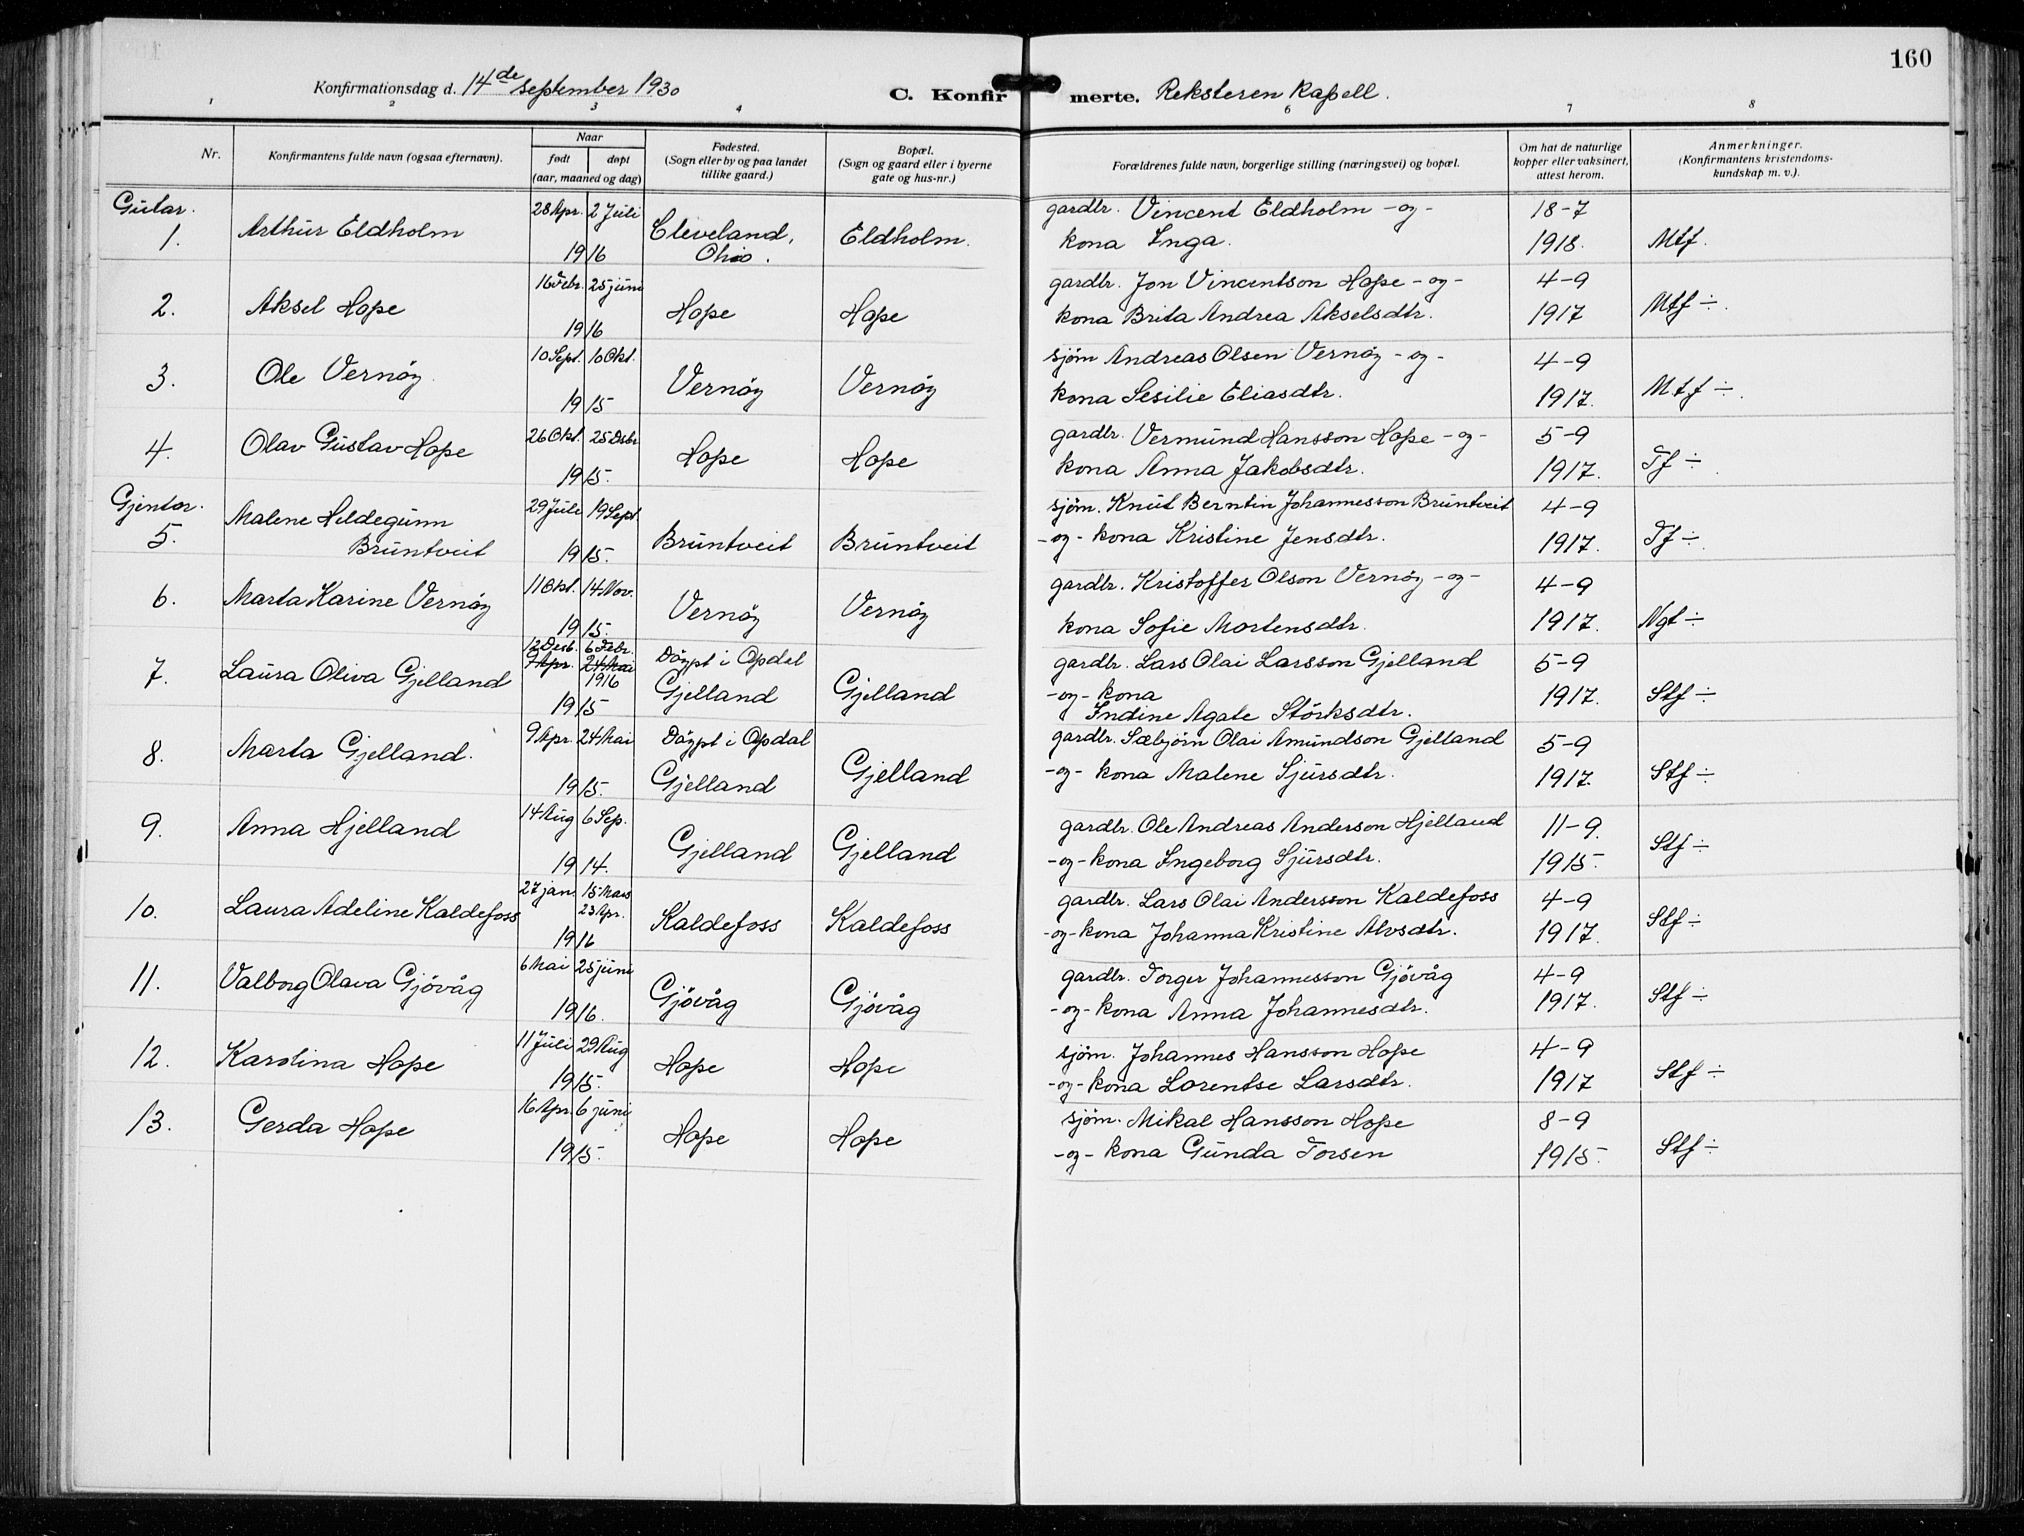 160
Konfirmationsdag d. 14de september 1930
C. Konfirmerte. Reksteren Kapell.
1 2 3 4 6 7 8
Nr.
Konfirmantens fulde navn (ogsaa efternavn).
Naar
født døpt
(aar, maaned og dag)
Fødested.
(Sogn eller by og paa landet
tillike gaard.)
Bopæl.
(Sogn og gaard eller i byerne
gate og hus-nr.)
Forældrenes fulde navn, borgerlige stilling (næringsvei) og bopæl.
Om hat de naturlige
kopper eller vaksinert,
attest herom.
Anmerkninger.
(Konfirmantens kristendoms-
kundskap m. v.).
Gutar.
1. Arthur Eldholm 28 Apr. 2 Juli Cleveland, Eldholm. gardbr. Vincent Eldholm -og- 18-7
1916 Ohio. kona Inga. 1918. Mtf.
2. Aksel Hope 16 Febr. 25 juni Hope Hope gardbr. Jon Vincentson Hope -og- 4-9
1916 kona Brita Andrea Akselsdtr. 1917 Mtf ÷.
3. Ole Vernøy 10 Sept. 10 Okt. Vernøy Vernøy sjøm Andreas Olsen Vernøy -og- 4-9
1915 kona Sesilie Eliasdtr. 1917. Mtf ÷.
4. Olav Gustav Hope 26 Okt. 25 Desbr Hope Hope gardbr. Vermund Hansson Hope -og- 5-9
1915. kona Anna Jakobsdtr. 1917. Tf ÷.
Gjentor.
5. Malene Heldegunn 29 Juli 19 Sept. Bruntveit Bruntveit sjøm. Knut Berntin Johannesson Bruntveit 4-9
Bruntveit 1915. -og- kona Kristine Jensdtr. 1917. Tf ÷.
6. Marta Karine Vernøy 11 Okt. 14 Nov. Vernøy Vernøy gardbr. Kristoffer Olson Vernøy -og- 4-9
1915. kona Sofie Mortensdtr. 1917. Ngt ÷
12 Desb. 6 Febr.
7. Laura Oliva Gjelland 9 Apr. 24 Mai Døypt i Opdal gardbr. Lars Olai Larsson Gjelland 5-9
1916 Gjelland Gjelland -og- kona 1917. Stf ÷
1915 Indine Agate Størksdtr.
8. Marta Gjelland. 9 Apr. 24 Mai Døypt i Opdal gardbr. Sæbjørn Olai Amundson Gjelland 5-9
1915. Gjelland Gjelland -og- kona Malene Sjursdtr. 1917. Stf ÷
9. Anna Hjelland 14 Aug 6 Sep. Gjelland Gjelland gardbr. Ole Andreas Anderson Hjelland 11-9.
1914. -og- kona Ingeborg Sjursdtr. 1915. Stf ÷
10. Laura Adeline Kaldefoss 27 jan 15 Mars Kaldefoss Kaldefoss gardbr. Lars Olai Andersson Kaldefoss 4-9
23 Apr.
1916 -og- kona Johanna Kristine Alvsdtr. 1917. Stf ÷
11. Valborg Olava Gjøvåg 6 Mai 25 juni Gjøvåg Gjøvåg gardbr. Torger Johannesson Gjøvåg 4-9
1916. -og- kona Anna Johannesdtr. 1917. Stf ÷
12. Karolina Hope 11 Juli 29 Aug Hope Hope sjøm. Johannes Hansson Hope 4-9
1915. -og- kona Lorentse Larsdtr. 1917 Stf ÷
13. Gerda Hope 16 Apr. 6 juni Hope Hope sjøm. Mikal Hansson Hope 8-9
1915. -og- kona Gunda Torsen 1915. Stf ÷